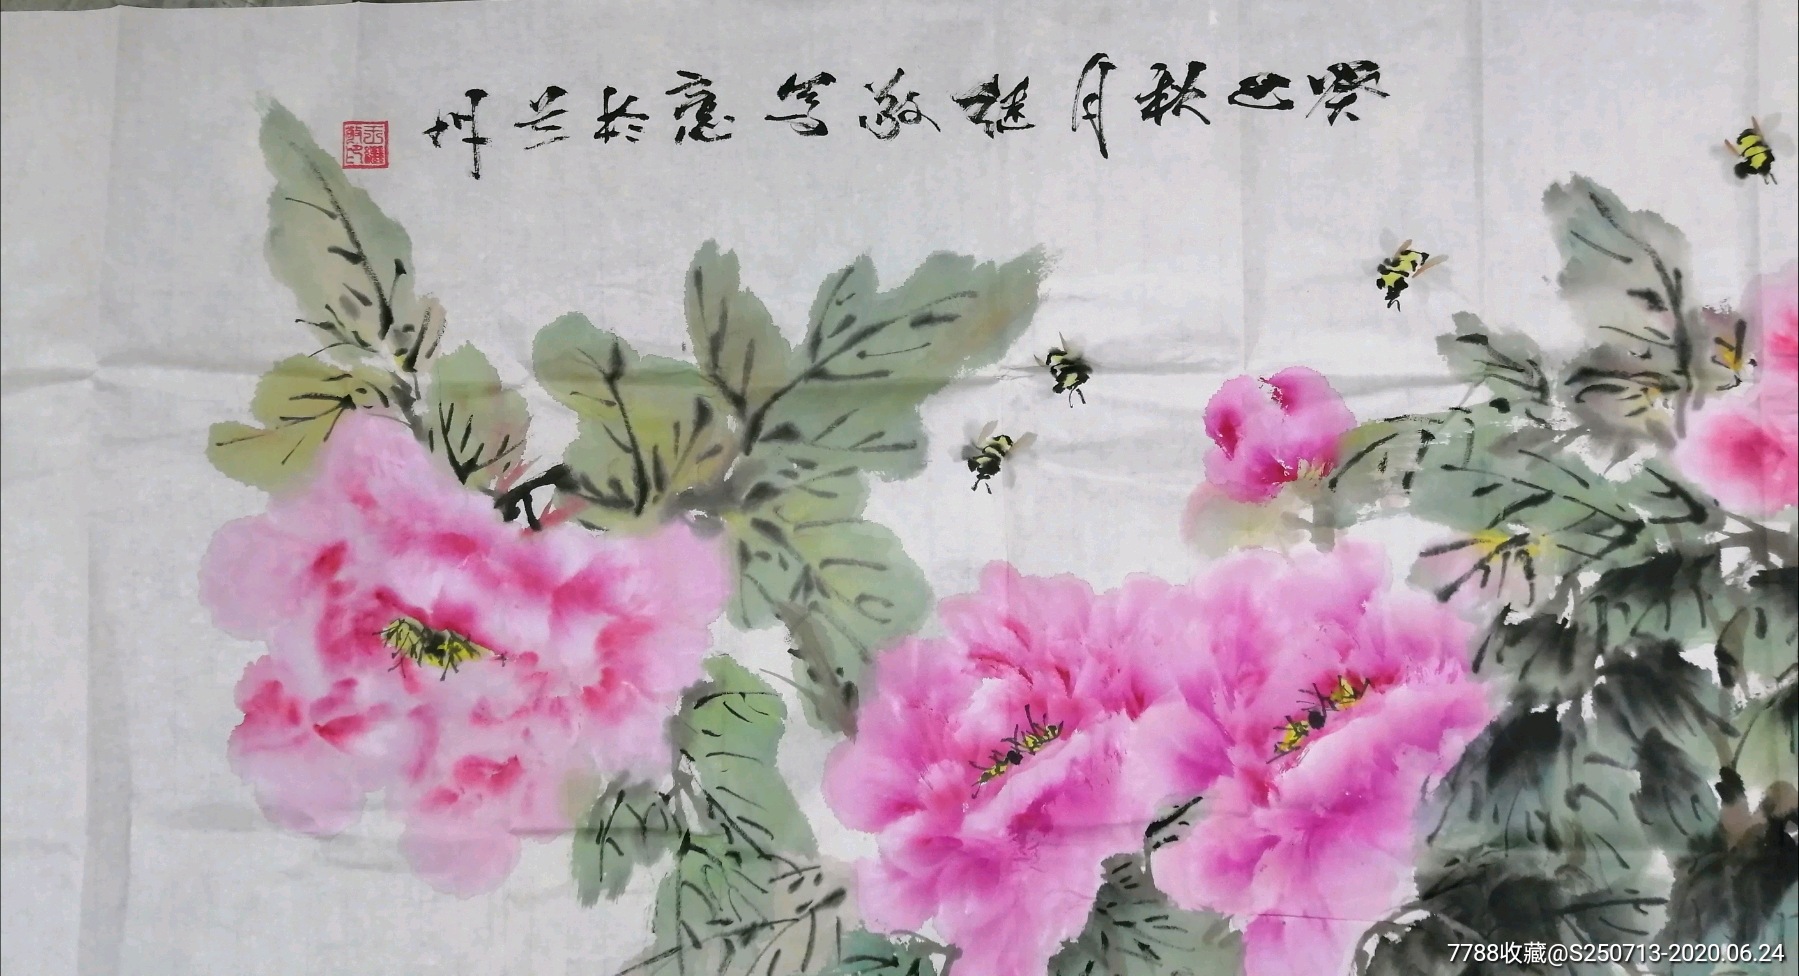 癸巳秋月继敬写意於兰州
繼敬印
7788收藏@S250713-2020.06.24